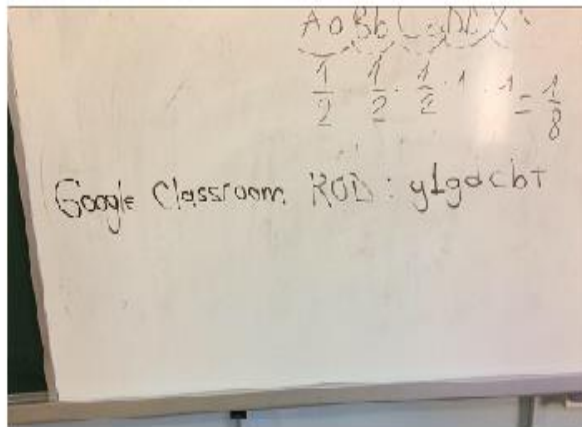 Aa Bb Cc DD
1/2 · 1/2 · 1/2 · 1 · 1 = 1/8
Google Classroom KOD : y1gdcbt